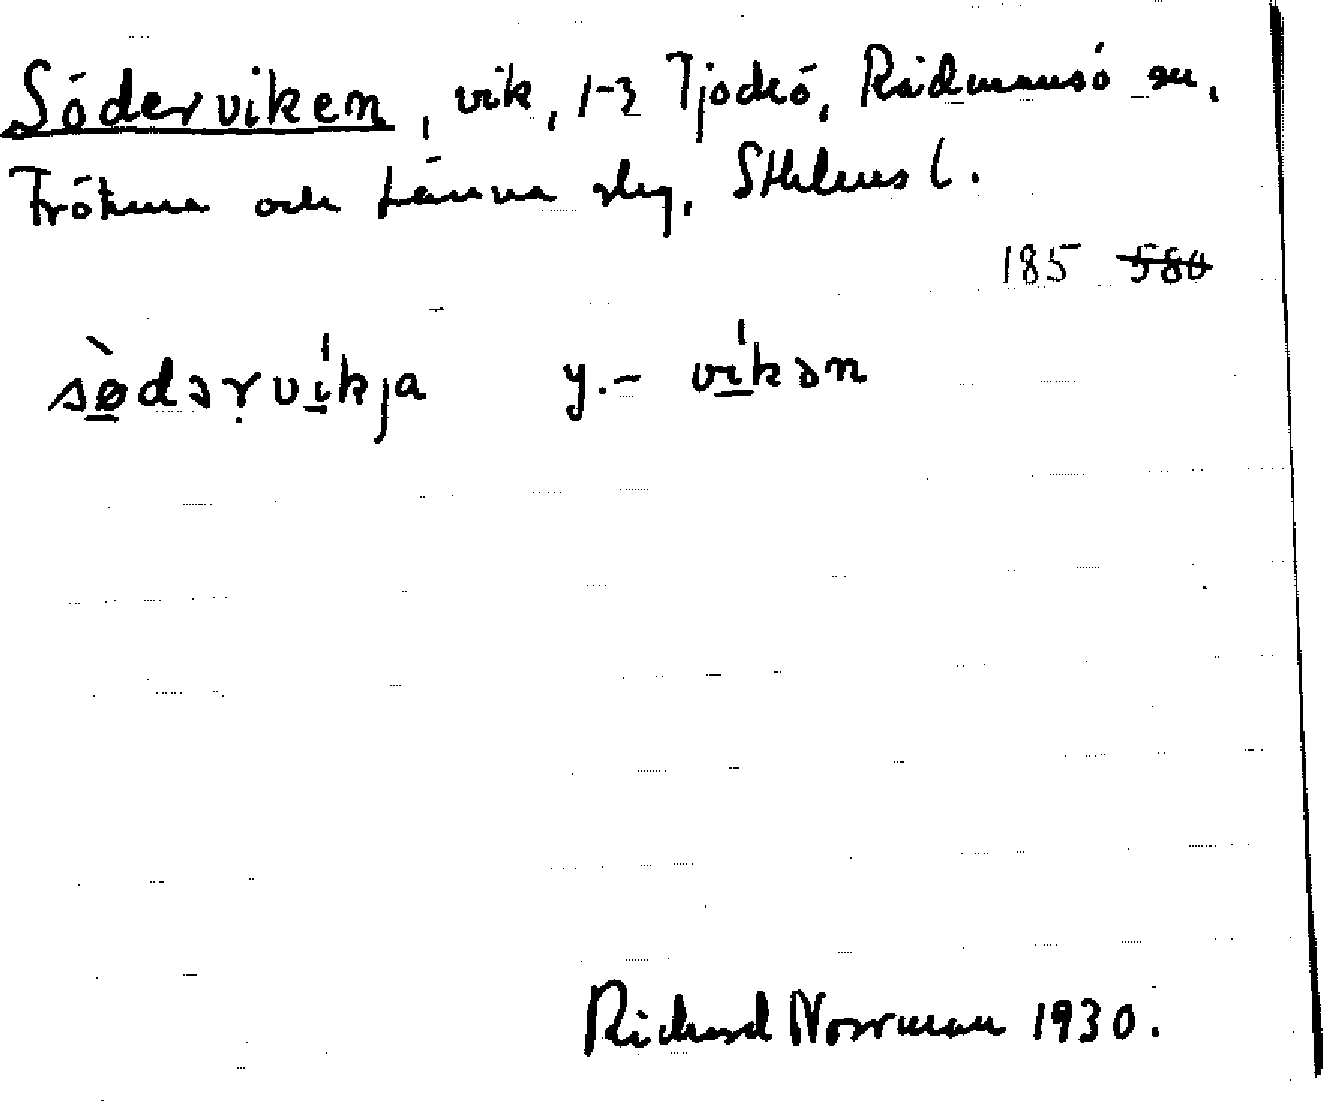 Söderviken, vik, 1-3 Tjockö, Rådmansö sn,
Frötuna och Länna slg, Sthlms l.
185 580
sø̀dərvíkja y.- víkən
Richard Norrman 1930.